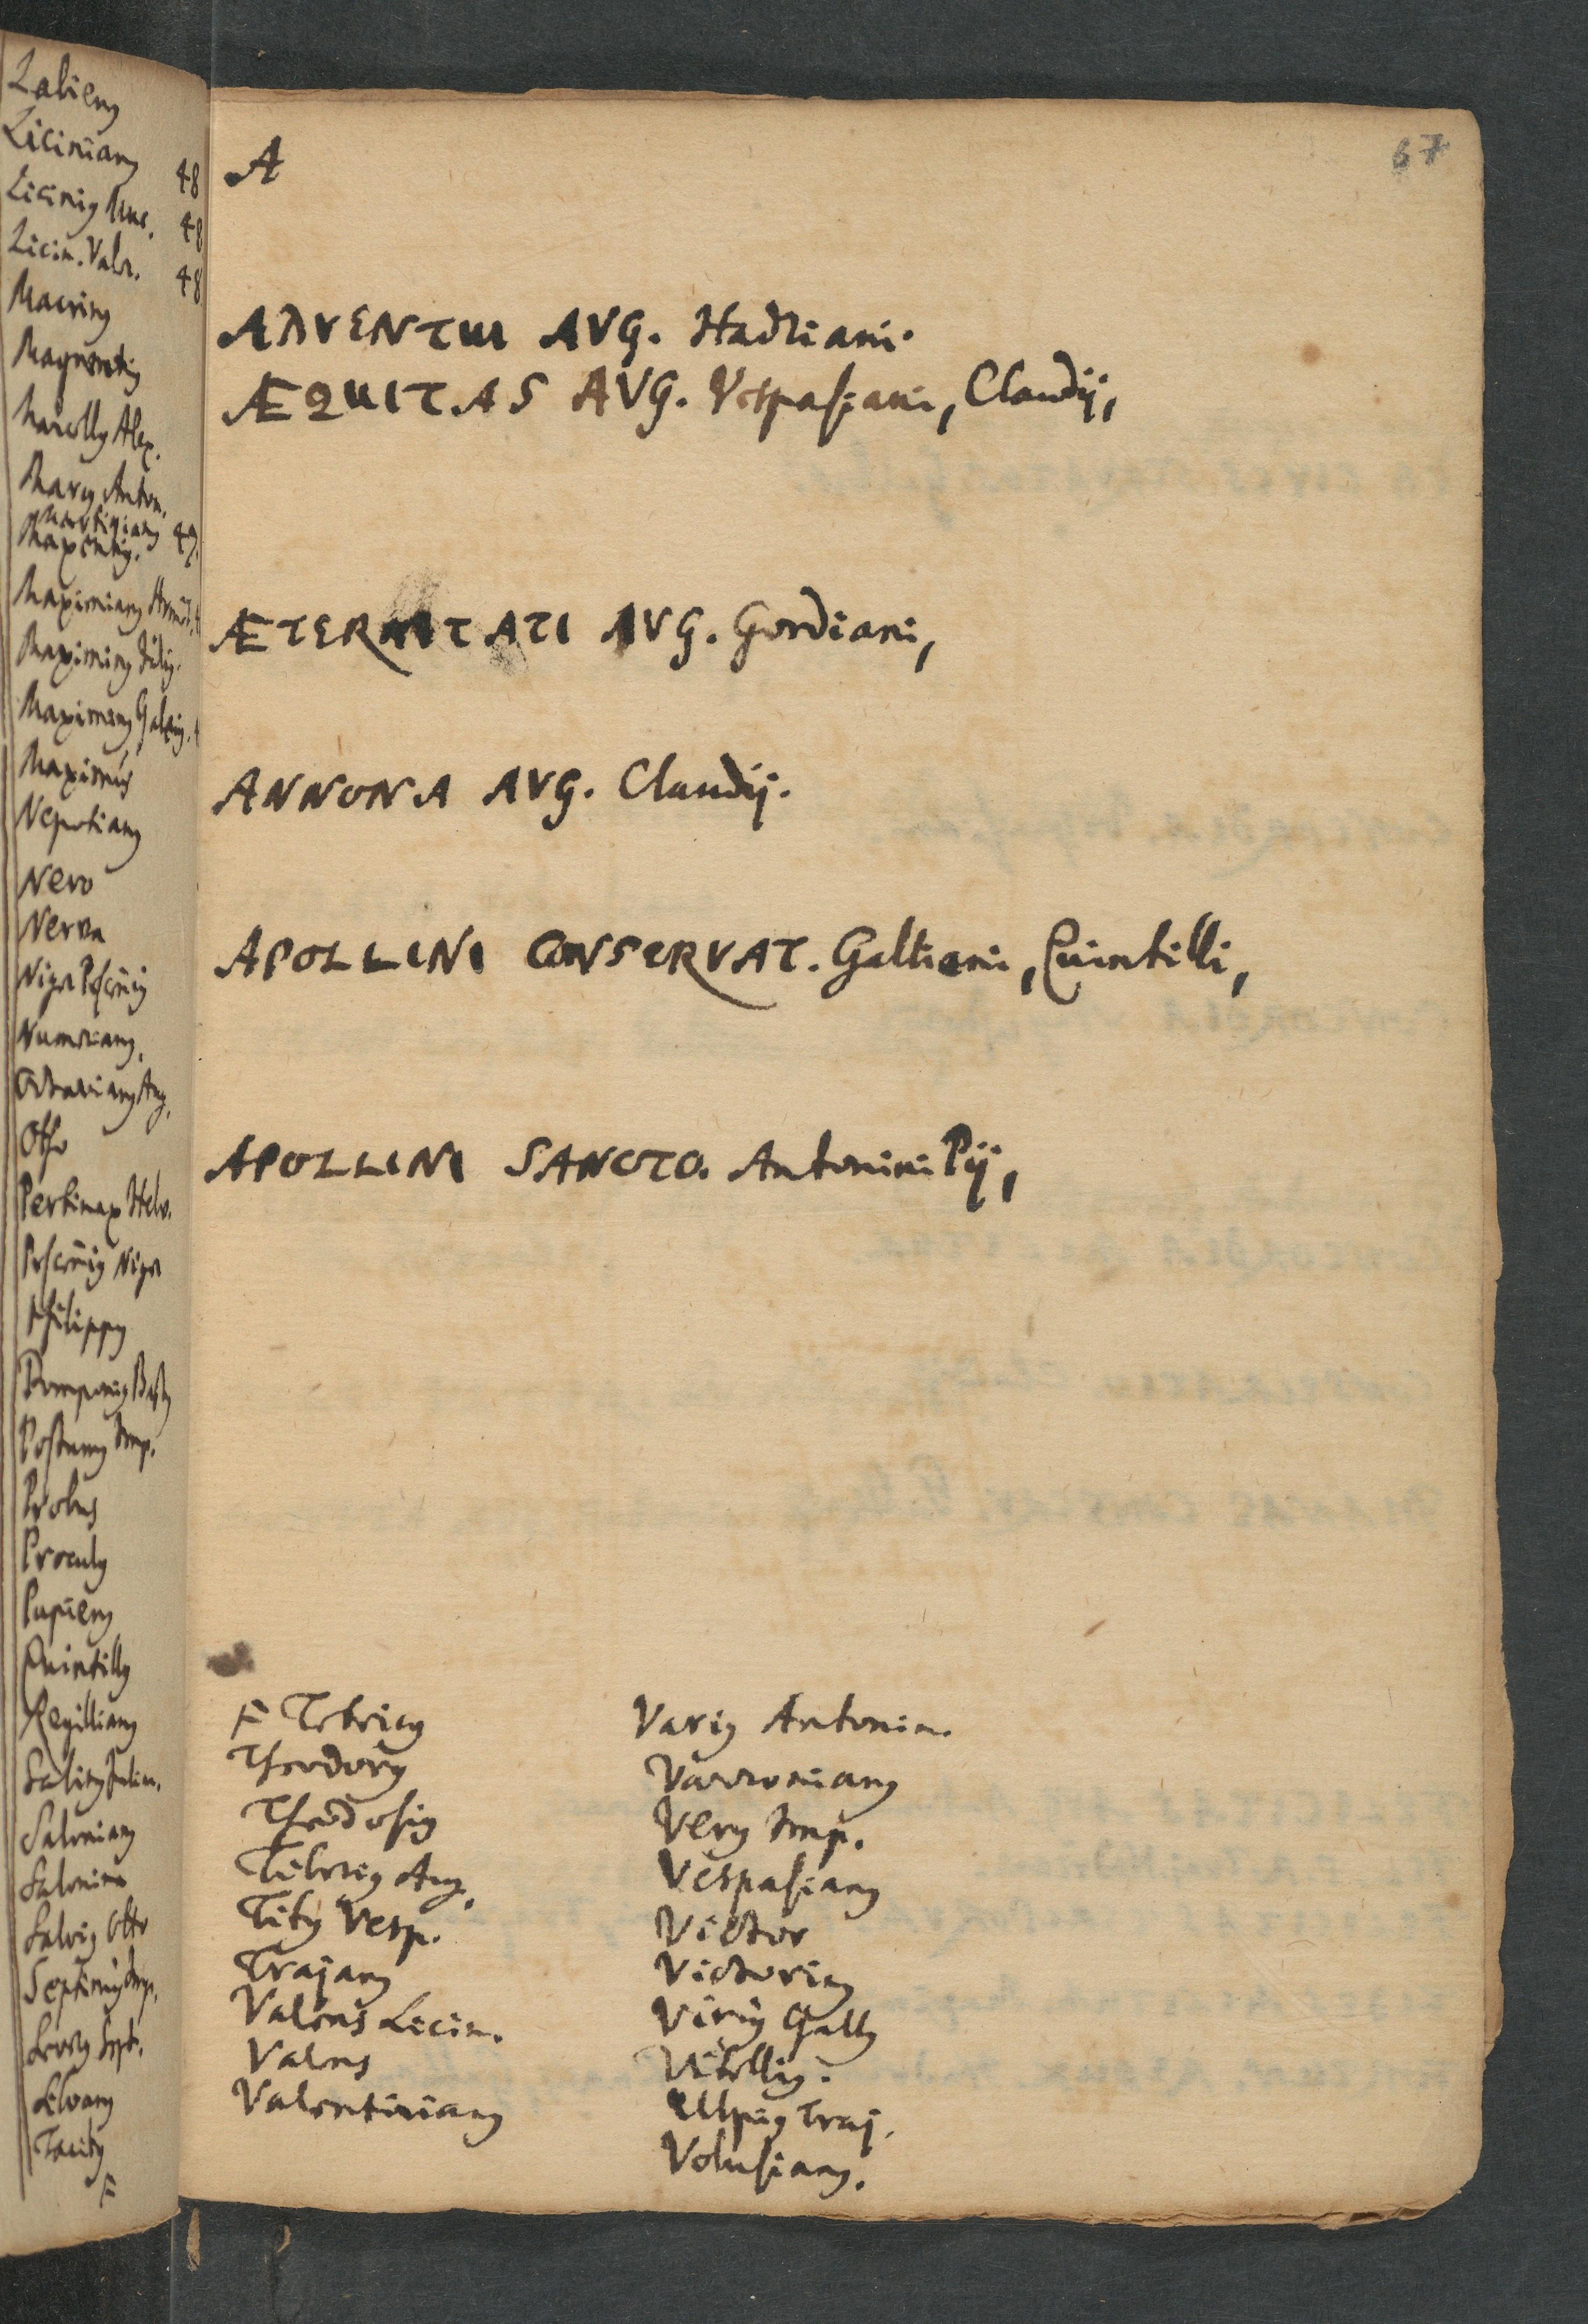 Labienus
Licinianus 48
Licinius Mac. 48
Licin. Valer. 48
Macrinus
Magnentius
Marcellus Alex.
Marcus Anton.
Martinianus 49.
Maxentius.
Maximianus
Maximinus
Maximianus Galer.
Maximus
Nepotianus
Nero
Nerva
Niger Pescenius
Numerianus.
Octavianus Aug.
Otho
Pertinax Helv.
Pescenius Niger
Philippus
Pomponius Bassus
Postumus Imp.
Probus
Proculus
Pupienus
Quintillus
Regillianus
Salonianus
Salonina
Salvius Otho
Septimius
Severus Sept.
Silvanus
Tacitus
F
67
A
ADVENTUI AVG. Hadriani.
ÆQUITAS AVG. Vespasiani, Claudij,
ÆTERNITATI AVG. Gordiani,
ANNONA AVG. Claudij.
APOLLINI CONSERVAT. Galtieni, Quintilli,
APOLLINI SANCTO. Antonini Pij,
F Tetricus
Theodorus
Theodosius
Tiberius Aug.
Titus Vesp.
Trajanus
Valens Licin.
Valens
Valentinianus
Varius Antonin.
Varronianus
Verus Imp.
Vespasianus
Victor
Victorinus
Virius Gallus
Vitellius.
Ulpius Traj.
Volusianus.